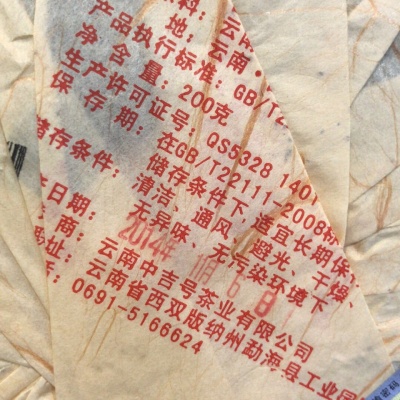 料：云南
地：云南·
产品执行标准：GB/T2
净含量：200克
生产许可证号：QS5328 1401
保存期：在GB/T22111-2008标
储存条件下 适宜长期保
储存条件：清洁、通风、避光、干燥、
无异味、无污染环境下
日期：2014年 1月 6 日
商：云南中吉号茶业有限公司
址：云南省西双版纳州勐海县工业园
话：0691-5166624